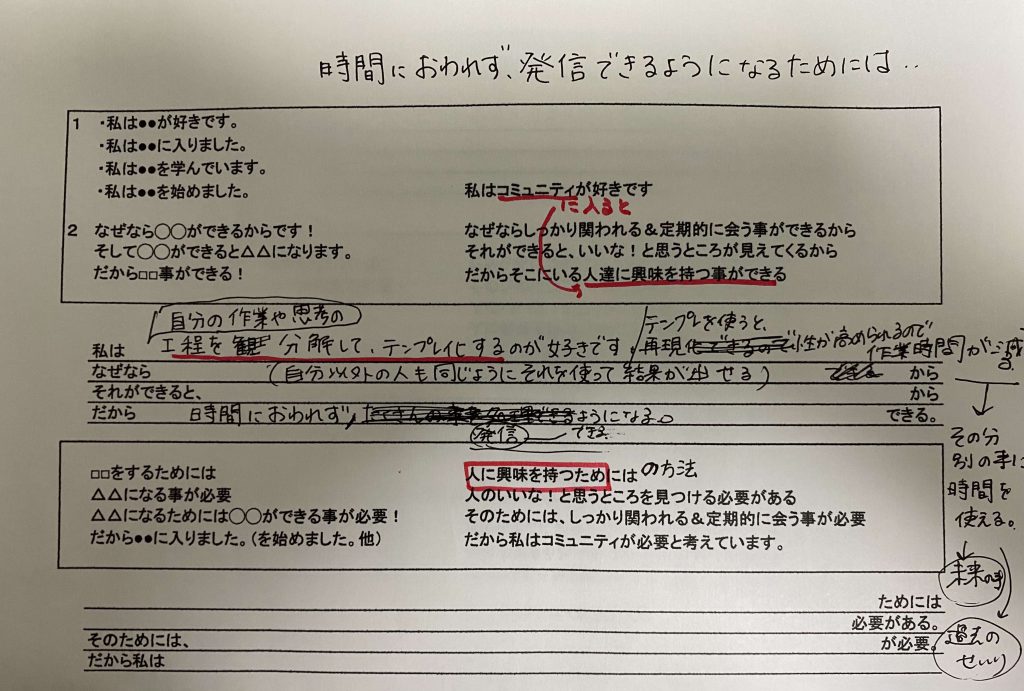 時間におわれず、発信できるようになるためには‥
1 ・私は●●が好きです。
・私は●●に入りました。
・私は●●を学んでいます。
・私は●●を始めました。
私はコミュニティが好きです
に入ると
2 なぜなら〇〇ができるからです！
そして〇〇ができると△△になります。
だから□□事ができる！
なぜならしっかり関われる＆定期的に会う事ができるから
それができると、いいな！と思うところが見えてくるから
だからそこにいる人達に興味を持つ事ができる
自分の作業や思考の
私は 工程を 分解して、テンプレ化するのが好きです。
テンプレを使うと、
再現性が高められるので
作業時間が
なぜなら (自分以外の人も同じようにそれを使って結果が出せる) から
それができると、 から
だから 時間におわれず、 ようになる。 できる。
発信 できる
その分
別の手に
時間を
使える。
未来の手
過去の
せいり
□□をするためには
△△になる事が必要
△△になるためには〇〇ができる事が必要！
だから●●に入りました。(を始めました。他)
人に興味を持つためには の方法
人のいいな！と思うところを見つける必要がある
そのためには、しっかり関われる＆定期的に会う事が必要
だから私はコミュニティが必要と考えています。
ためには
必要がある。
そのためには、 が必要。
だから私は